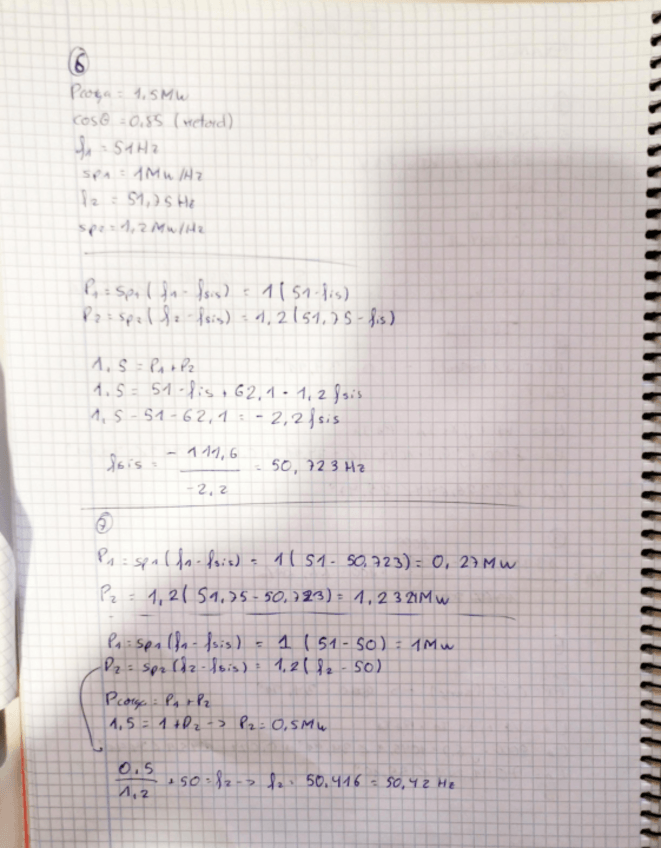 6
Pcarga = 1,5Mw
cosθ = 0,85 (retard)
f1 = 51Hz
sp1 = 1Mw/Hz
f2 = 51,75 Hz
sp2 = 1,2Mw/Hz
P1 = sp1 ( f1 - fsis) = 1( 51-fsis)
P2 = sp2 ( f2 - fsis) = 1,2(51,75 - fsis)
1,5 = P1 + P2
1,5 = 51 - fsis + 62,1 - 1,2 fsis
1,5 - 51 - 62,1 = - 2,2 fsis
fsis = -111,6 / -2,2 = 50,723 Hz
7
P1 = sp1 (f1 - fsis) = 1( 51 - 50,723) = 0,27Mw
P2 = 1,2( 51,75 - 50,723) = 1,2321Mw
P1 = sp1 (f1 - fsis) = 1 (51 - 50) = 1Mw
P2 = sp2 (f2 - fsis) = 1,2( f2 - 50)
Pcarga = P1 + P2
1,5 = 1 + P2 -> P2 = 0,5Mw
0,5 / 1,2 + 50 = f2 -> f2 = 50,416 = 50,42 Hz